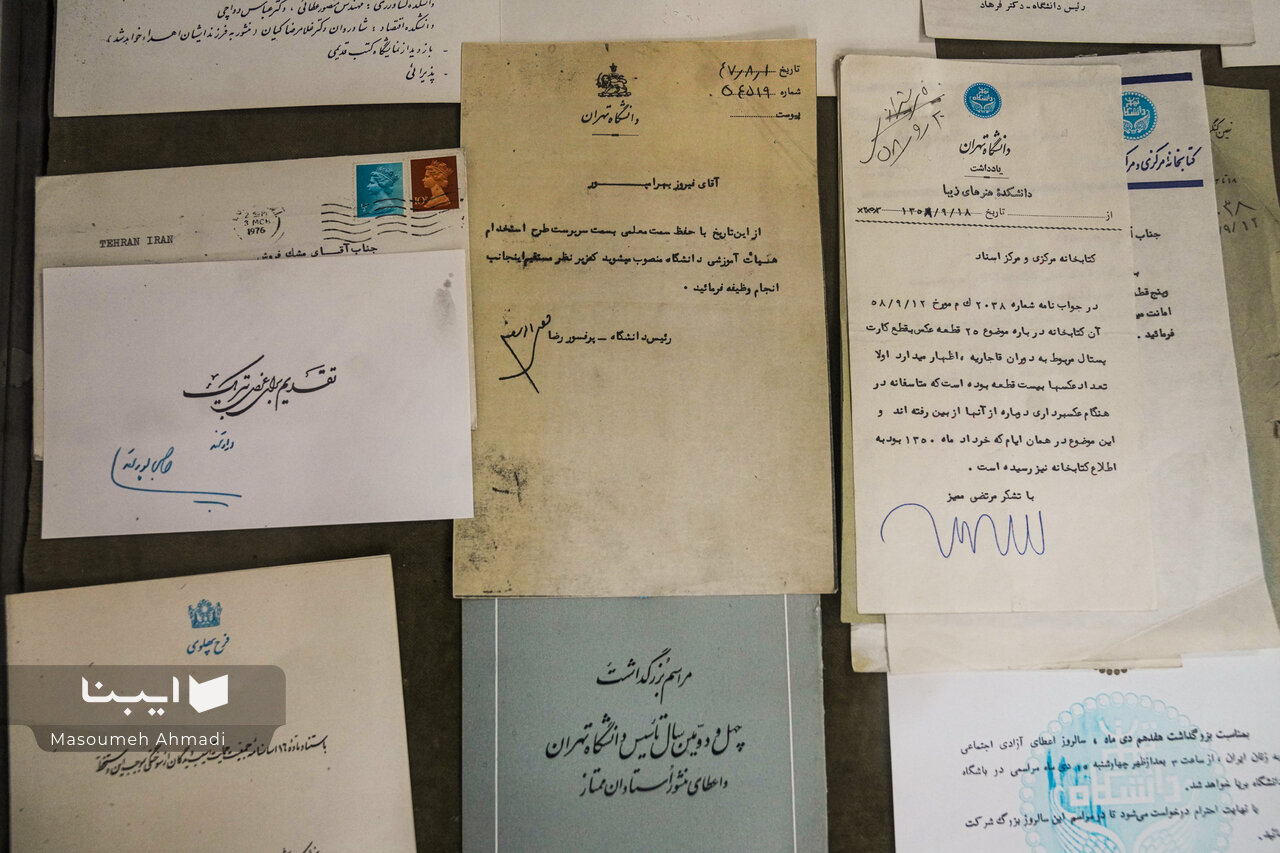 دانشکده کشاورزی : مهندس منصور عطائی ، دکتر عباس دواچی
دانشکده اقتصاد : شادروان دکتر غلامرضا کیان ( منشور به فرزند ایشان اهداء خواهد شد )
- بازدید از نمایشگاه کتب قدیمی
- پذیرائی
رئیس دانشگاه - دکتر فرهاد
TEHRAN IRAN
3 MCH
1976
جناب آقای مشک فروش
تقدیم برای عرض تبریک
فرح پهلوی
دانشگاه تهران
تاریخ ۴۷٫۸٫۱
شماره ۵۴۵۱۹
پیوست
آقای فیروز بهرامپور
از این تاریخ با حفظ سمت معلمی بسمت سرپرست طرح استخدام
هیات آموزشی دانشگاه منصوب میشوید که زیر نظر مستقیم اینجانب
انجام وظیفه فرمائید ۰
رئیس دانشگاه - پرفسور رضا
مراسم بزرگداشت
چهل و دومین سال تأسیس دانشگاه تهران
و اعطای منشور استادان ممتاز
دانشگاه تهران
یادداشت
دانشکده هنرهای زیبا
از تاریخ ۱۳۵۸/۹/۱۸
کتابخانه مرکزی و مرکز اسناد
در جواب نامه شماره ۲۰۳۸ ک م مورخ ۵۸/۹/۱۲
آن کتابخانه درباره موضوع ۲۵ قطعه عکس بقطع کارت
پستال مربوط به دوران قاجاریه ، اظهار میدارد اولا
تعداد عکسها بیست قطعه بوده است که متاسفانه در
هنگام عکسبرداری دوباره از آنها از بین رفته اند و
این موضوع در همان ایام که خرداد ماه ۱۳۵۰ بود به
اطلاع کتابخانه نیز رسیده است .
با تشکر مرتضی ممیز
کتابخانه مرکزی و مرکز
جناب
پنج قطعه
امانت
فرمائید .
بمناسبت بزرگداشت هفدهم دی ماه ، سالروز اعطای آزادی اجتماعی
به زنان ایران ، از ساعت ۳ بعدازظهر چهارشنبه دی ماه مراسمی در باشگاه
دانشگاه برپا خواهد شد.
با نهایت احترام درخواست می‌شود تا در مراسم این سالروز بزرگ شرکت
ایبنا
Masoumeh Ahmadi